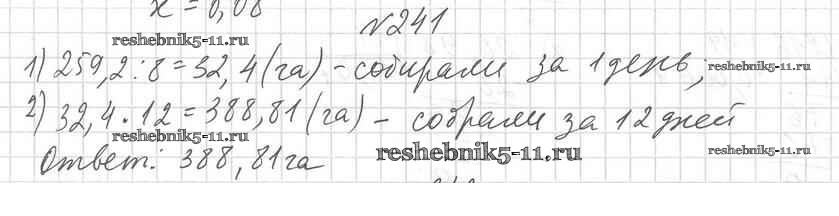 x = 0,08
№241
reshebnik5-11.ru
1) 259,2 : 8 = 32,4 (га) - собирали за 1 день,
reshebnik5-11.ru
2) 32,4 · 12 = 388,81 (га) - собрали за 12 дней
reshebnik5-11.ru
Ответ: 388,81 га
reshebnik5-11.ru
reshebnik5-11.ru